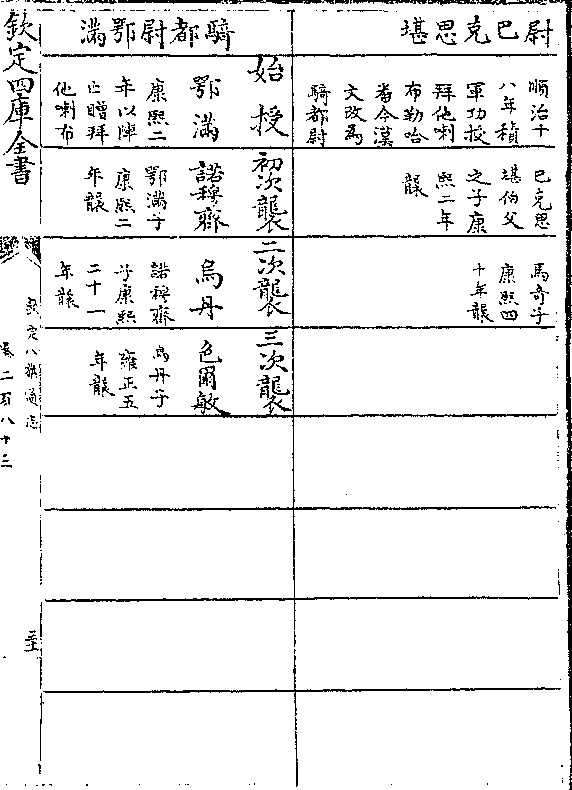 尉巴克思堪
順治十
八年積
軍功授
拜他喇
布勒哈
畨今漢
文改為
騎都尉
巳克思
堪伯父
之子康
熙二年
襲
馬奇子
康熙四
十年襲
騎都尉鄂滿
始授
鄂滿
康熙二
年以陣
亡贈拜
他喇布
初次襲
諾穆齊
鄂滿子
康熙二
年襲
二次襲
烏丹
諾穆齊
子康熙
二十一
年襲
三次襲
色爾敏
烏丹子
雍正五
年襲
欽定四庫全書
欽定八旗通志
卷二百八十三